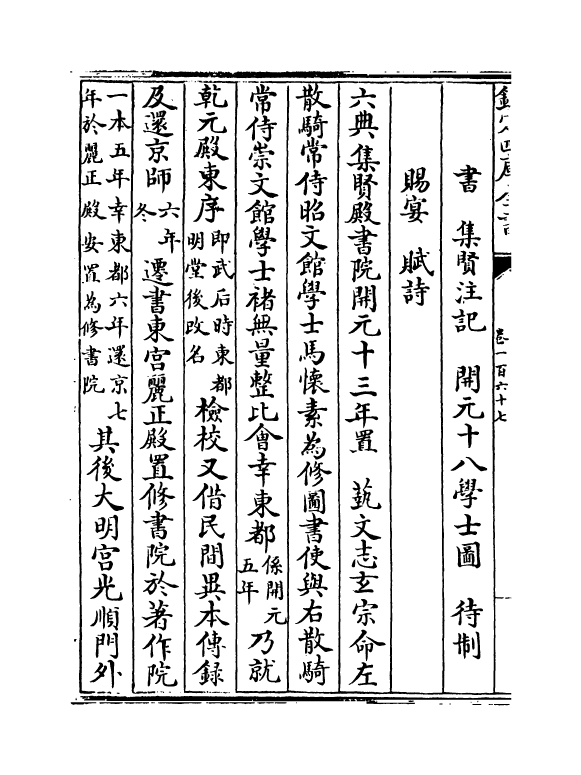 欽定四庫全書
卷一百六十七
書　集賢注記　開元十八學士圖　待制
賜宴　賦詩
六典集賢殿書院開元十三年置　藝文志玄宗命左
散騎常侍昭文館學士馬懷素為修圖書使與右散騎
常侍崇文館學士禇無量整比會幸東都係開元五年乃就
乾元殿東序即武后時東都明堂後改名檢校又借民間異本傳録
及還京師六年冬遷書東宮麗正殿置修書院於著作院
一本五年幸東都六年還京七年於麗正殿安置為修書院其後大明宮光順門外